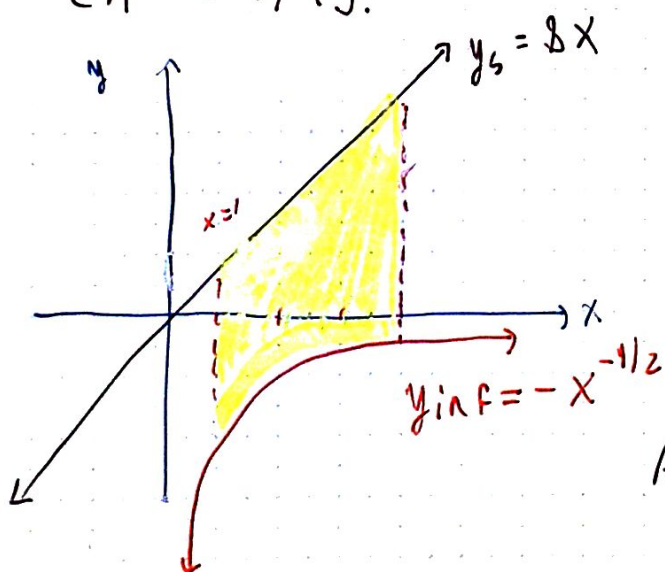 y
y_s = 8X
x=1
x
y inf = - X^-1/2